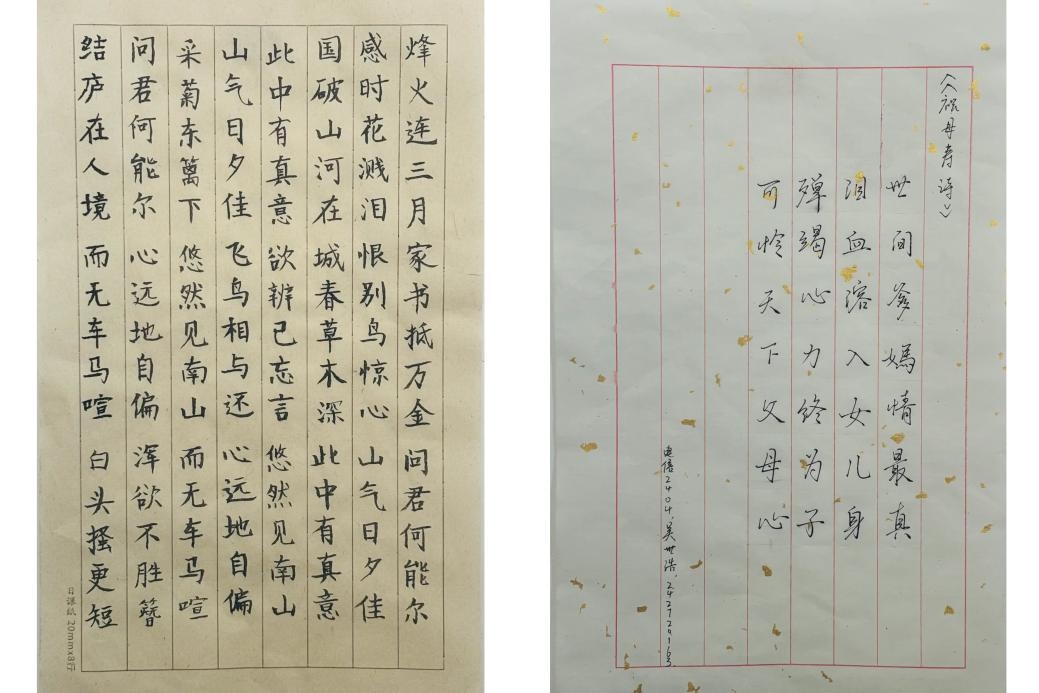 烽火连三月 家书抵万金 问君何能尔
感时花溅泪 恨别鸟惊心 山气日夕佳
国破山河在 城春草木深 此中有真意
此中有真意 欲辨已忘言 悠然见南山
山气日夕佳 飞鸟相与还 心远地自偏
采菊东篱下 悠然见南山 而无车马喧
问君何能尔 心远地自偏 浑欲不胜簪
结庐在人境 而无车马喧 白头搔更短
日课纸 20mm×8行
《祝母寿诗》
世间爹妈情最真
泪血溶入女儿身
殚竭心力终为子
可怜天下父母心
电信2404.吴世浩.